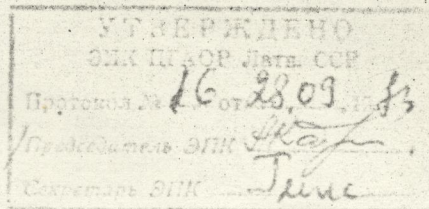 УТВЕРЖДЕНО
ЭПК ЦГАОР Латв. ССР
Протокол № 16 от 28.09.
Председатель ЭПК
Секретарь ЭПК